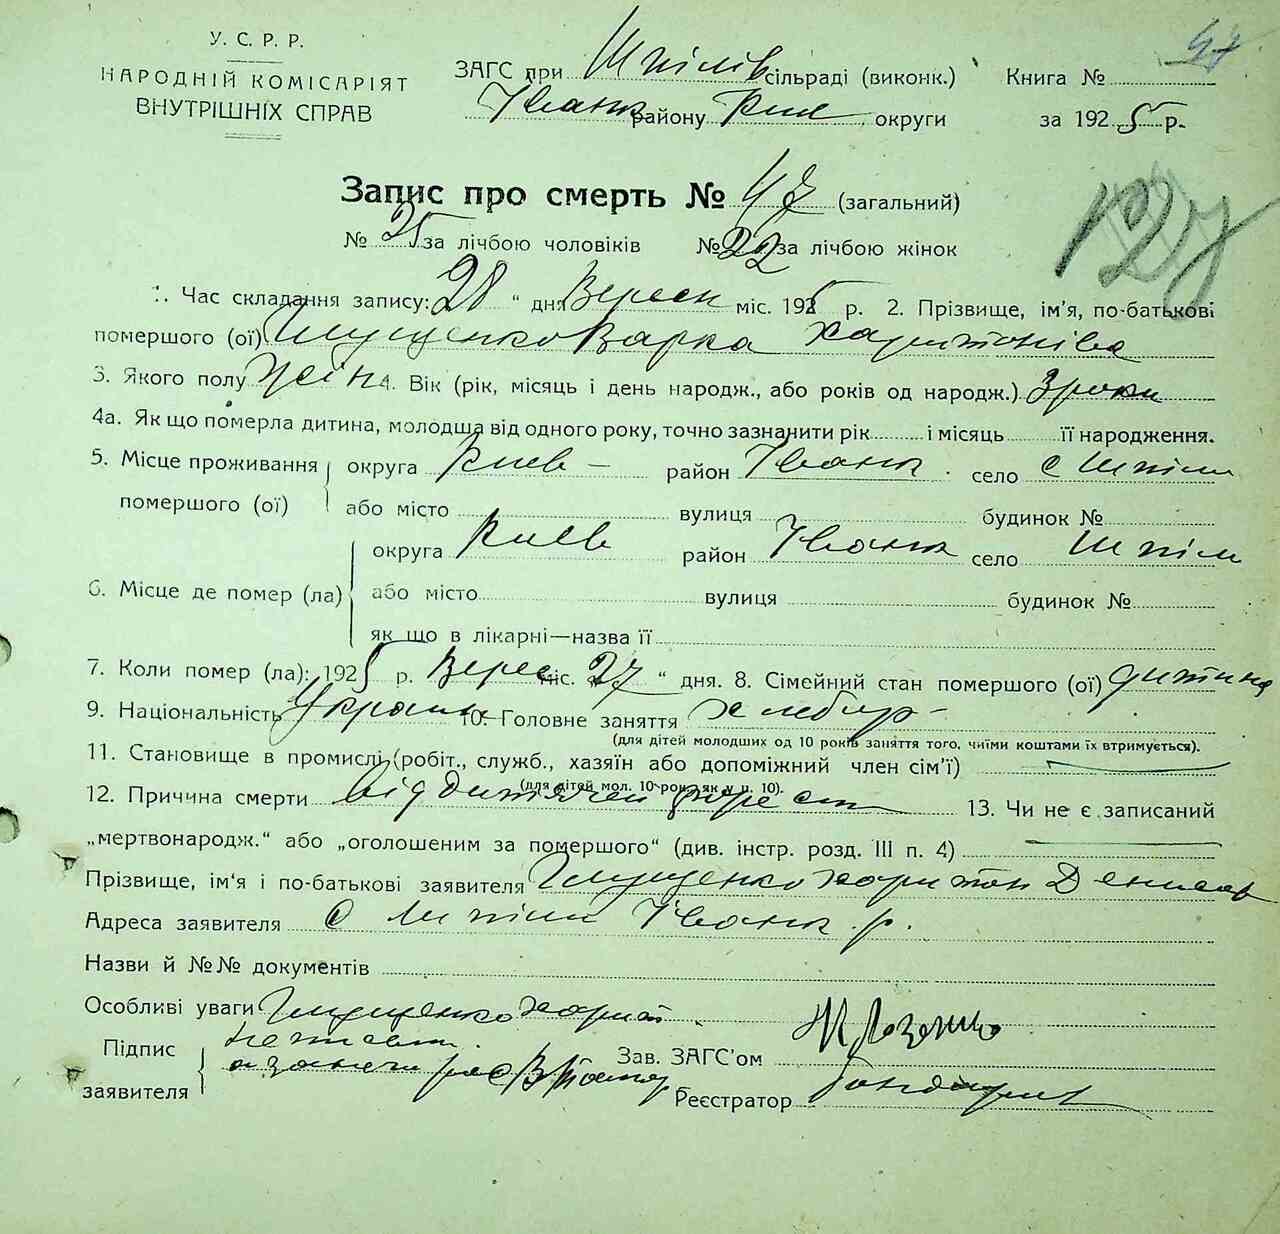 У. С. Р. Р.
НАРОДНІЙ КОМІСАРІЯТ
ВНУТРІШНІХ СПРАВ
47
ЗАГС при Шпілів сільраді (виконк.) Книга №
Іванк району Киев округи за 1925 р.
Запис про смерть № 47 (загальний)
127
№ 25 за лічбою чоловіків № 22 за лічбою жінок
1. Час складання запису: 28 " дня Вересн міс. 1925 р. 2. Прізвище, ім'я, по-батькові
помершого (ої) Глущенко Варка Харитонівна
3. Якого полу Жін 4. Вік (рік, місяць і день народж., або років од народж.) 3 роки
4а. Як що померла дитина, молодша від одного року, точно зазначити рік і місяць її народження.
5. Місце проживання помершого (ої) округа Киев район Іванк село с Шпіли
або місто вулиця будинок №
6. Місце де помер (ла) округа Киев район Іванк село Шпіли
або місто вулиця будинок №
як що в лікарні—назва її
7. Коли помер (ла): 1925 р. Верес міс. „27" дня. 8. Сімейний стан помершого (ої) дитина
9. Національність Украин 10. Головне заняття хлебор
(для дітей молодших од 10 років заняття того, чиїми коштами їх втримується).
11. Становище в промислі (робіт., служб., хазяїн або допоміжний член сім'ї)
(для дітей мол. 10 рок. як у п. 10).
12. Причина смерти від дитячей 13. Чи не є записаний
„мертвонародж.“ або „оголошеним за помершого“ (див. інстр. розд. III п. 4)
Прізвище, ім'я і по-батькові заявителя Глущенко Харитон Денисов
Адреса заявителя с Шпіли Іванк. р.
Назви й №№ документів
Особливі уваги Глущенко Харит
Підпис заявителя
Зав. ЗАГС'ом
Реєстратор